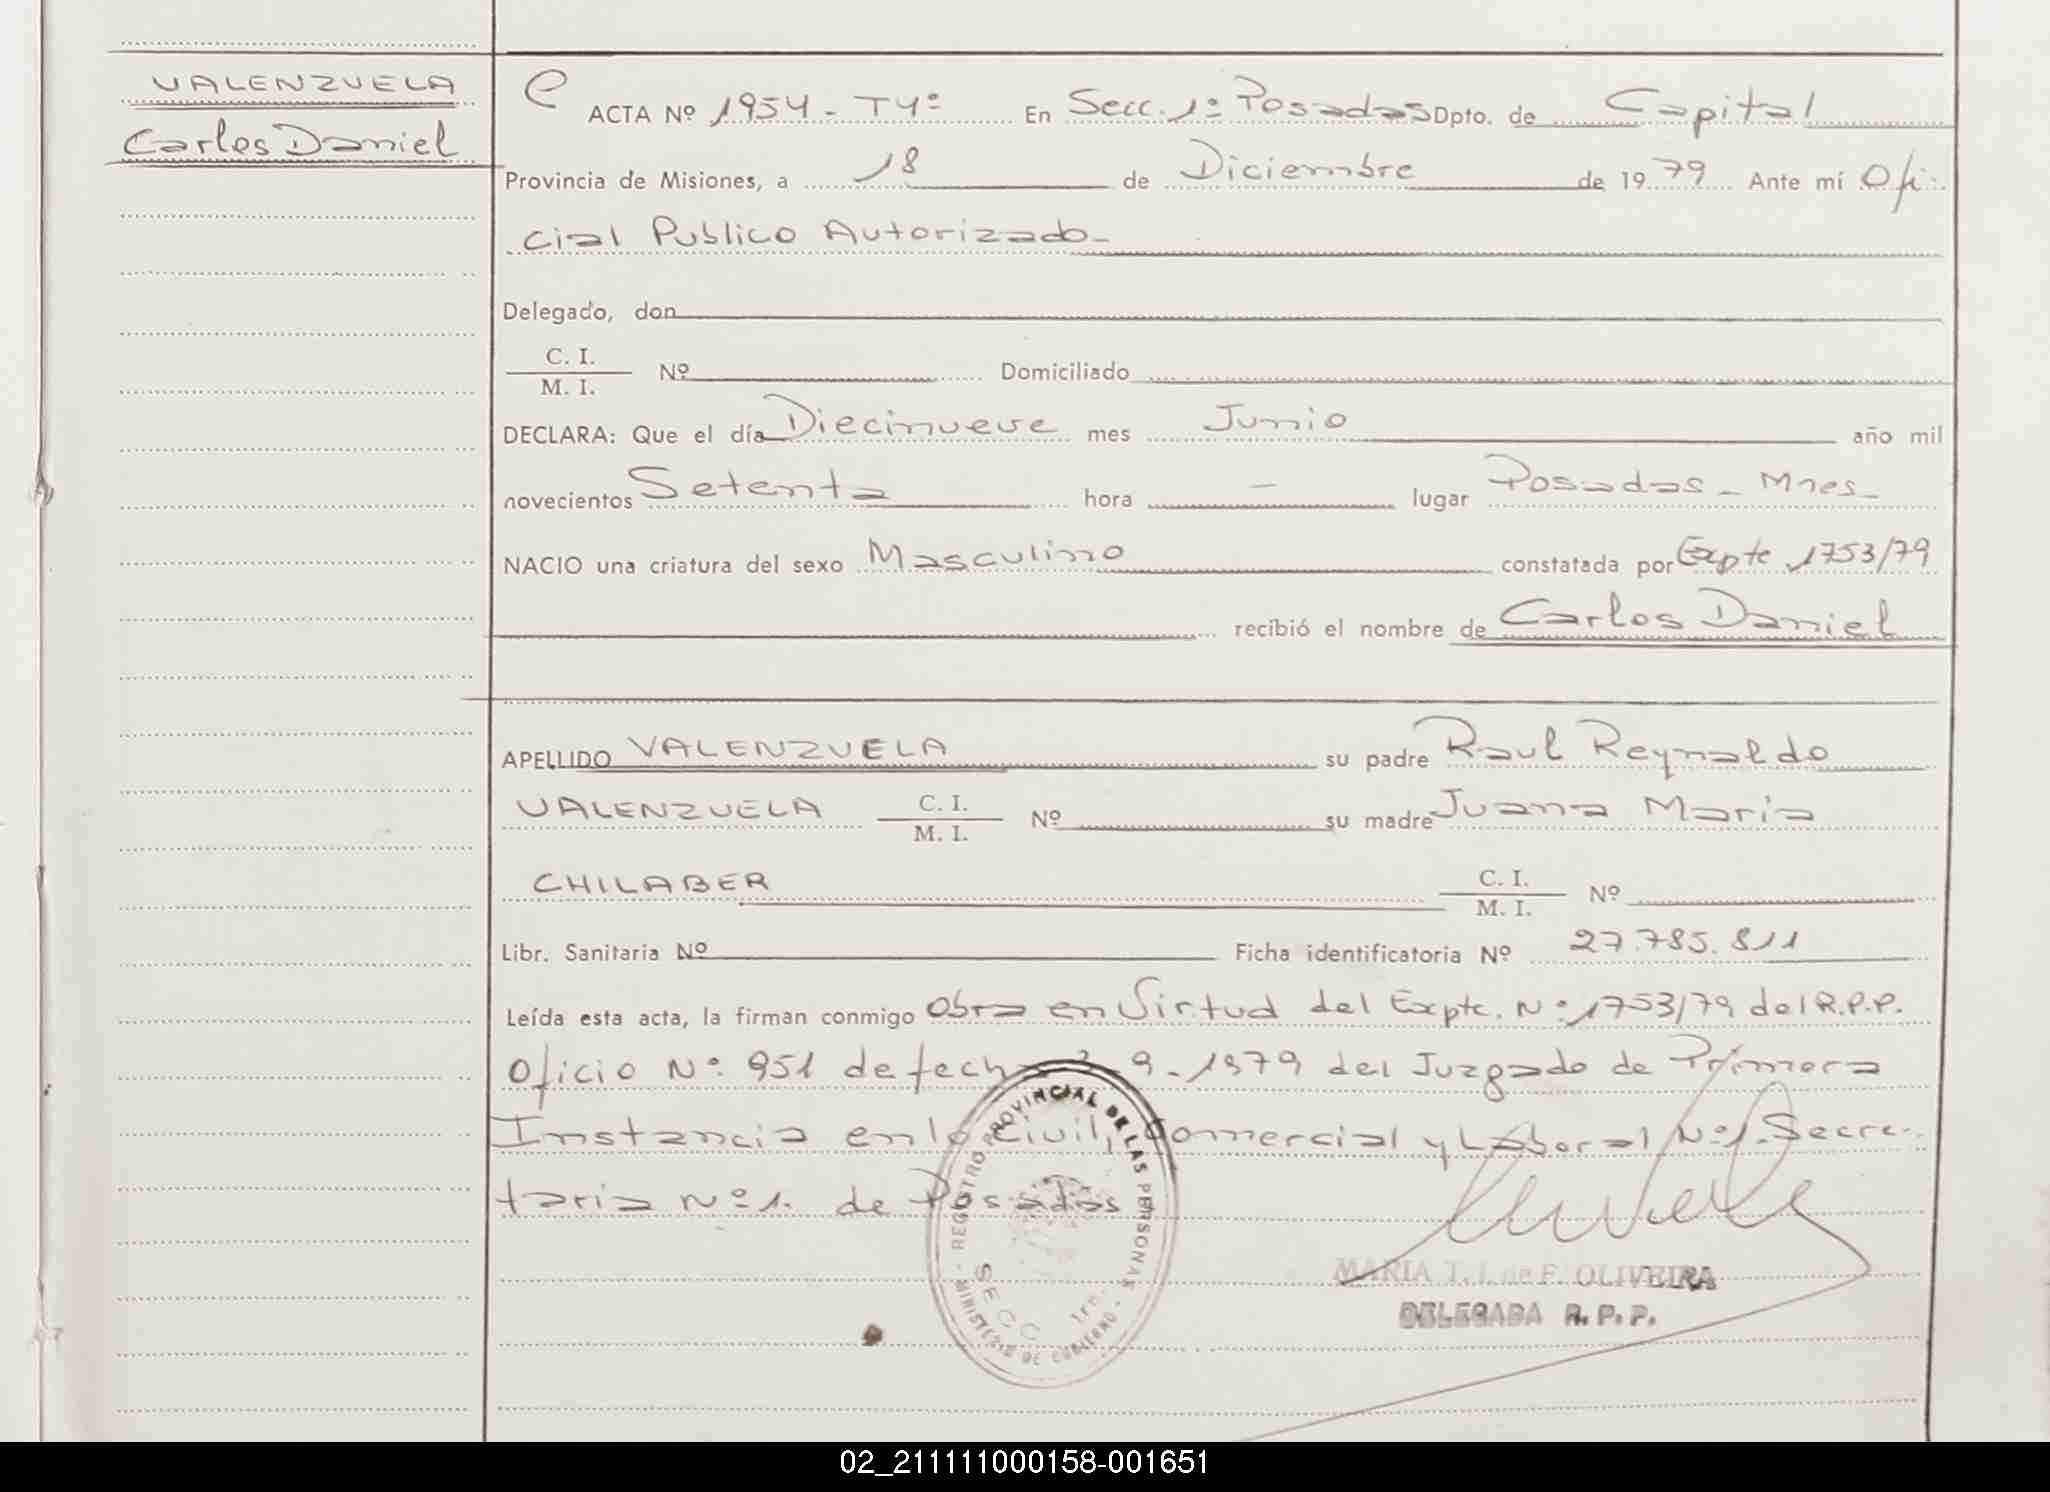 VALENZUELA
Carlos Daniel
ACTA Nº 1954 - T4º En Secc. 1º Posadas Dpto. de Capital
Provincia de Misiones, a 18 de Diciembre de 1979 Ante mí Ofi-
cial Publico Autorizado-
Delegado, don
C. I.
M. I. Nº Domiciliado
DECLARA: Que el día Diecinueve mes Junio año mil
novecientos Setenta hora — lugar Posadas - Mnes-
NACIO una criatura del sexo Masculino constatada por Expte 1753/79
recibió el nombre de Carlos Daniel
APELLIDO VALENZUELA su padre Raul Reynaldo
VALENZUELA C. I. M. I. Nº su madre Juana Maria
CHILABER C. I. M. I. Nº
Libr. Sanitaria Nº Ficha identificatoria Nº 27.785.811
Leída esta acta, la firman conmigo Obra en Virtud del Expte. Nº 1753/79 del R.P.P.
Oficio Nº 951 de fecha 3-9-1979 del Juzgado de Primera
Instancia en lo Civil, Comercial y Laboral Nº1. Secre-
taria Nº1. de Posadas
REGISTRO PROVINCIAL DE LAS PERSONAS
SECC 1ra.
MINISTERIO DE GOBIERNO
MARIA T. I. de F. OLIVEIRA
DELEGADA R. P. P.
02_211111000158-001651